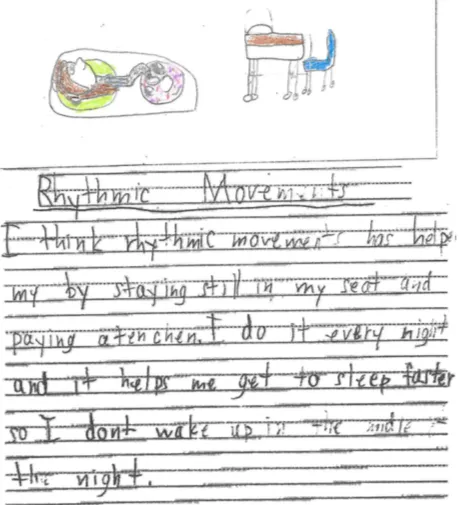 Rhythmic Movements
I think rhythmic movements has helpe
my by staying still in my seat and
paying atenchen. I do it every night
and it helps me get to sleep faster
so I dont wake up in the midle
the night.